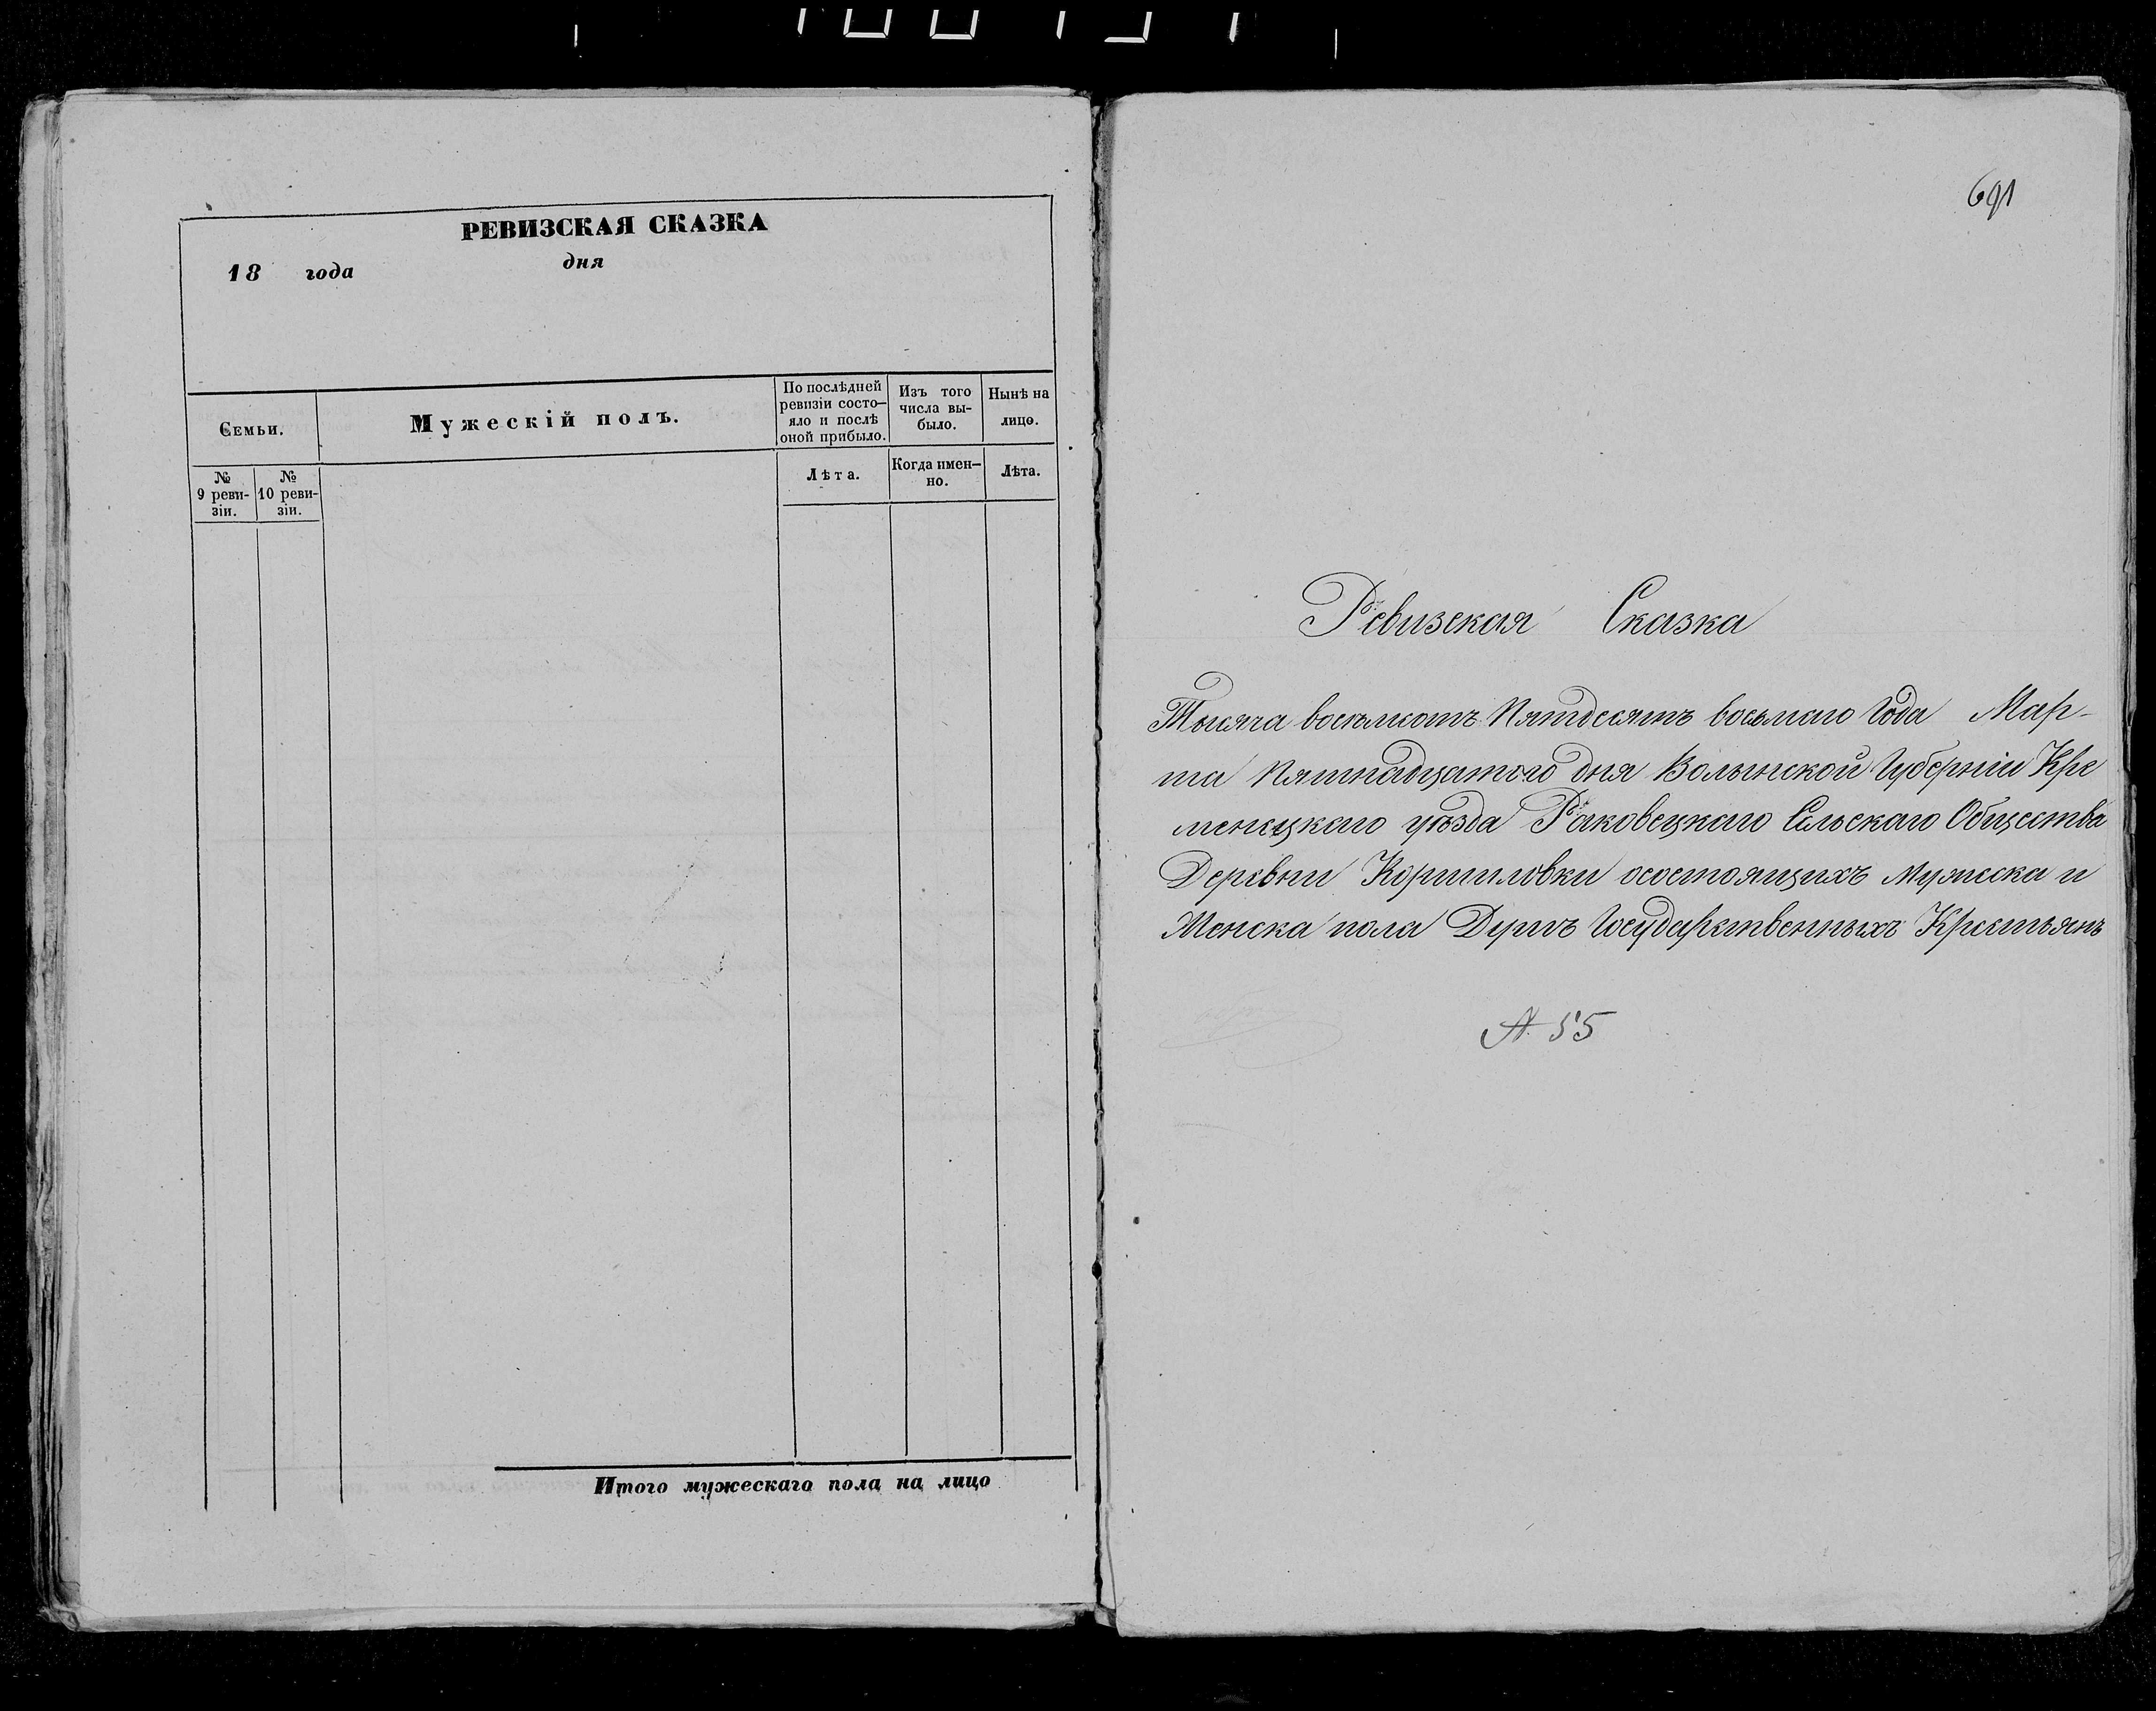 РЕВИЗСКАЯ СКАЗКА
18 года дня
Семьи.
Мужескій полъ.
По послѣдней
ревизіи состо-
яло и послѣ
оной прибыло.
Изъ того
числа вы-
было.
Нынѣ на
лицо.
№
9 реви-
зіи.
№
10 реви-
зіи.
Лѣта.
Когда имен-
но.
Лѣта.
Итого мужескаго пола на лицо
691
Ревизская Сказка
Тысяча восемьсотъ Пятдесятъ восьмаго Года Мар-
та Пятнадцатого дня Волынской Губерніи Кре
менецкаго уѣзда Раковецкаго Сельскаго Общества
Деревни Коршиловки осостоящихъ Мужеска и
Женска пола Душъ Государственныхъ Крестьянъ
55